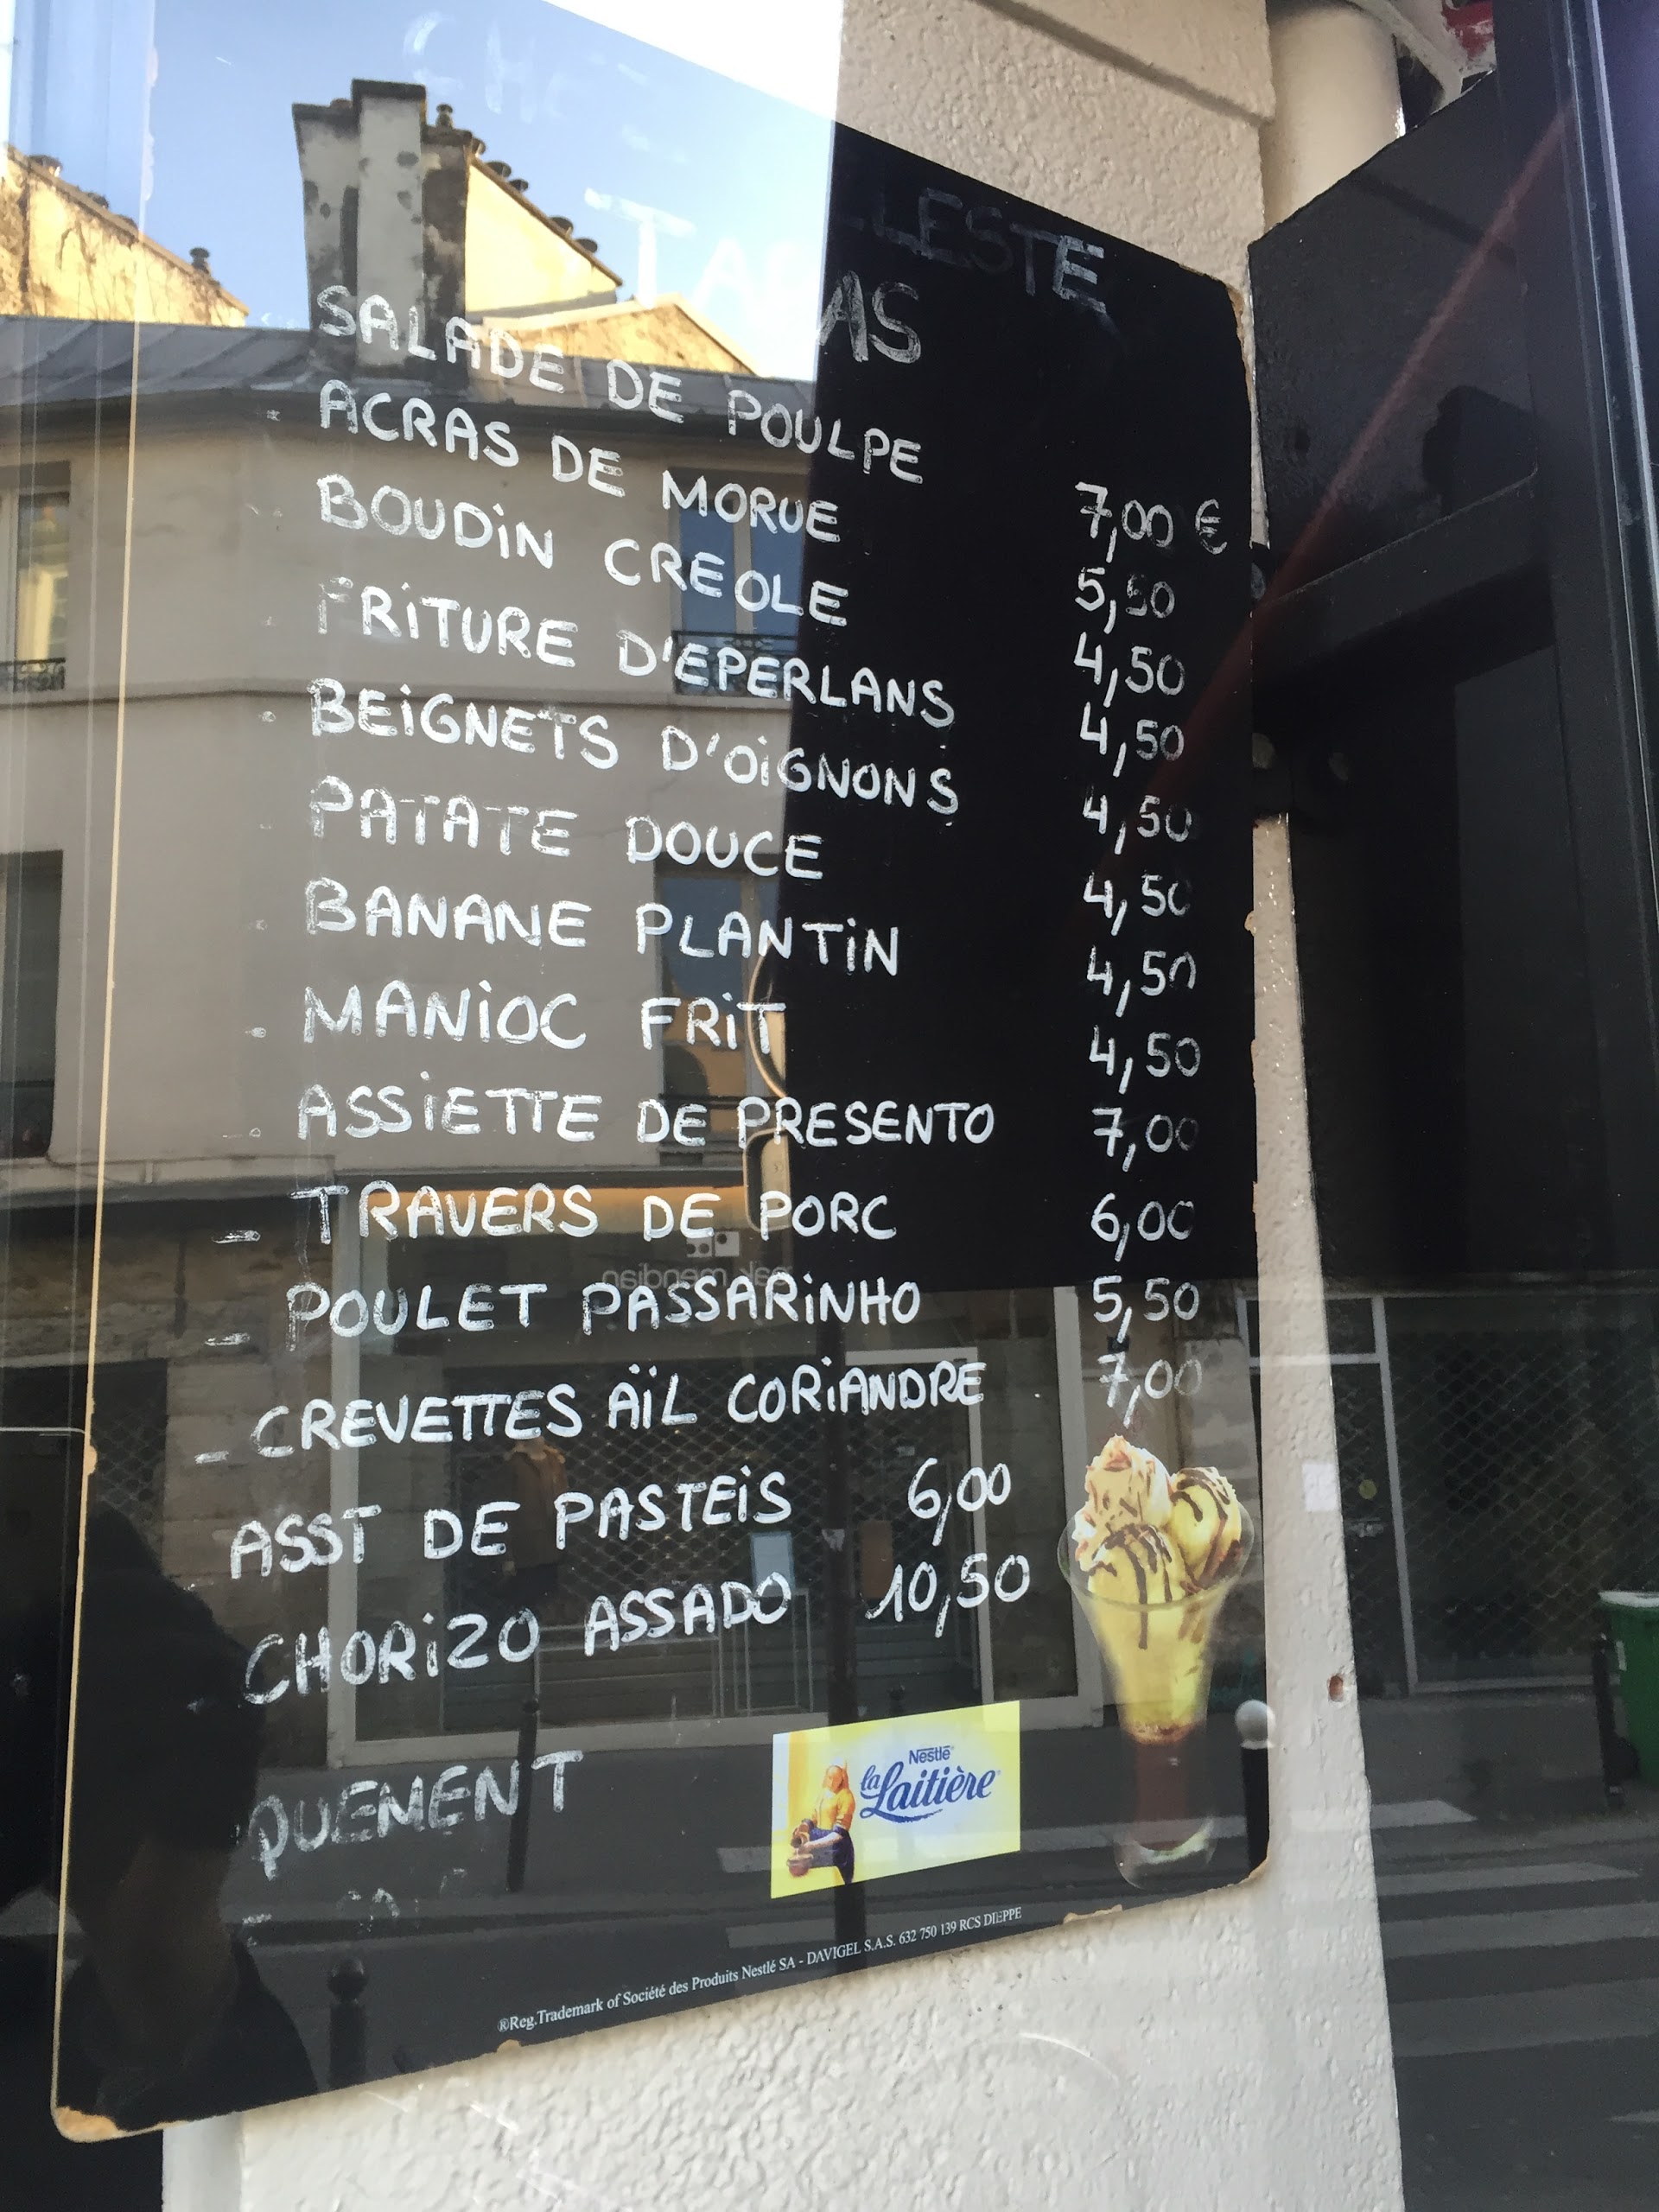 TAPAS
SALADE DE POULPE 7,00 €
ACRAS DE MORUE 5,50
BOUDIN CREOLE 4,50
FRITURE D'EPERLANS 4,50
BEIGNETS D'OIGNONS 4,50
PATATE DOUCE 4,50
BANANE PLANTIN 4,50
MANIOC FRIT 4,50
ASSIETTE DE PRESENTO 7,00
- TRAVERS DE PORC 6,00
- POULET PASSARINHO 5,50
- CREVETTES AÏL CORIANDRE 7,00
ASST DE PASTEIS 6,00
CHORIZO ASSADO 10,50
QUEMENT
Nestlé
la Laitière
®Reg.Trademark of Société des Produits Nestlé SA - DAVIGEL S.A.S. 632 750 139 RCS DIEPPE